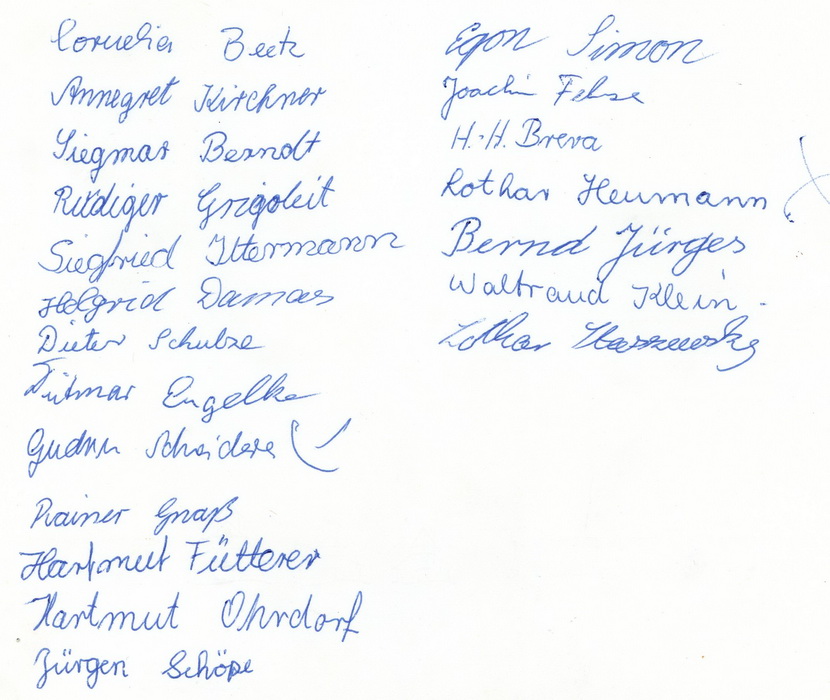 Cornelia Beetz
Annegret Kirchner
Siegmar Berndt
Rüdiger Grigoleit
Siegfried Ittermann
Helgrid Damas
Dieter Schulze
Dietmar Engelke
Gudrun
Rainer Gnaß
Hartmut Fütterer
Hartmut Ohrdorf
Jürgen Schöpe
Egon Simon
Joachim Fehse
H.-H. Breva
Lothar Heumann
Bernd Jürges
Waltraud Klein
Lothar